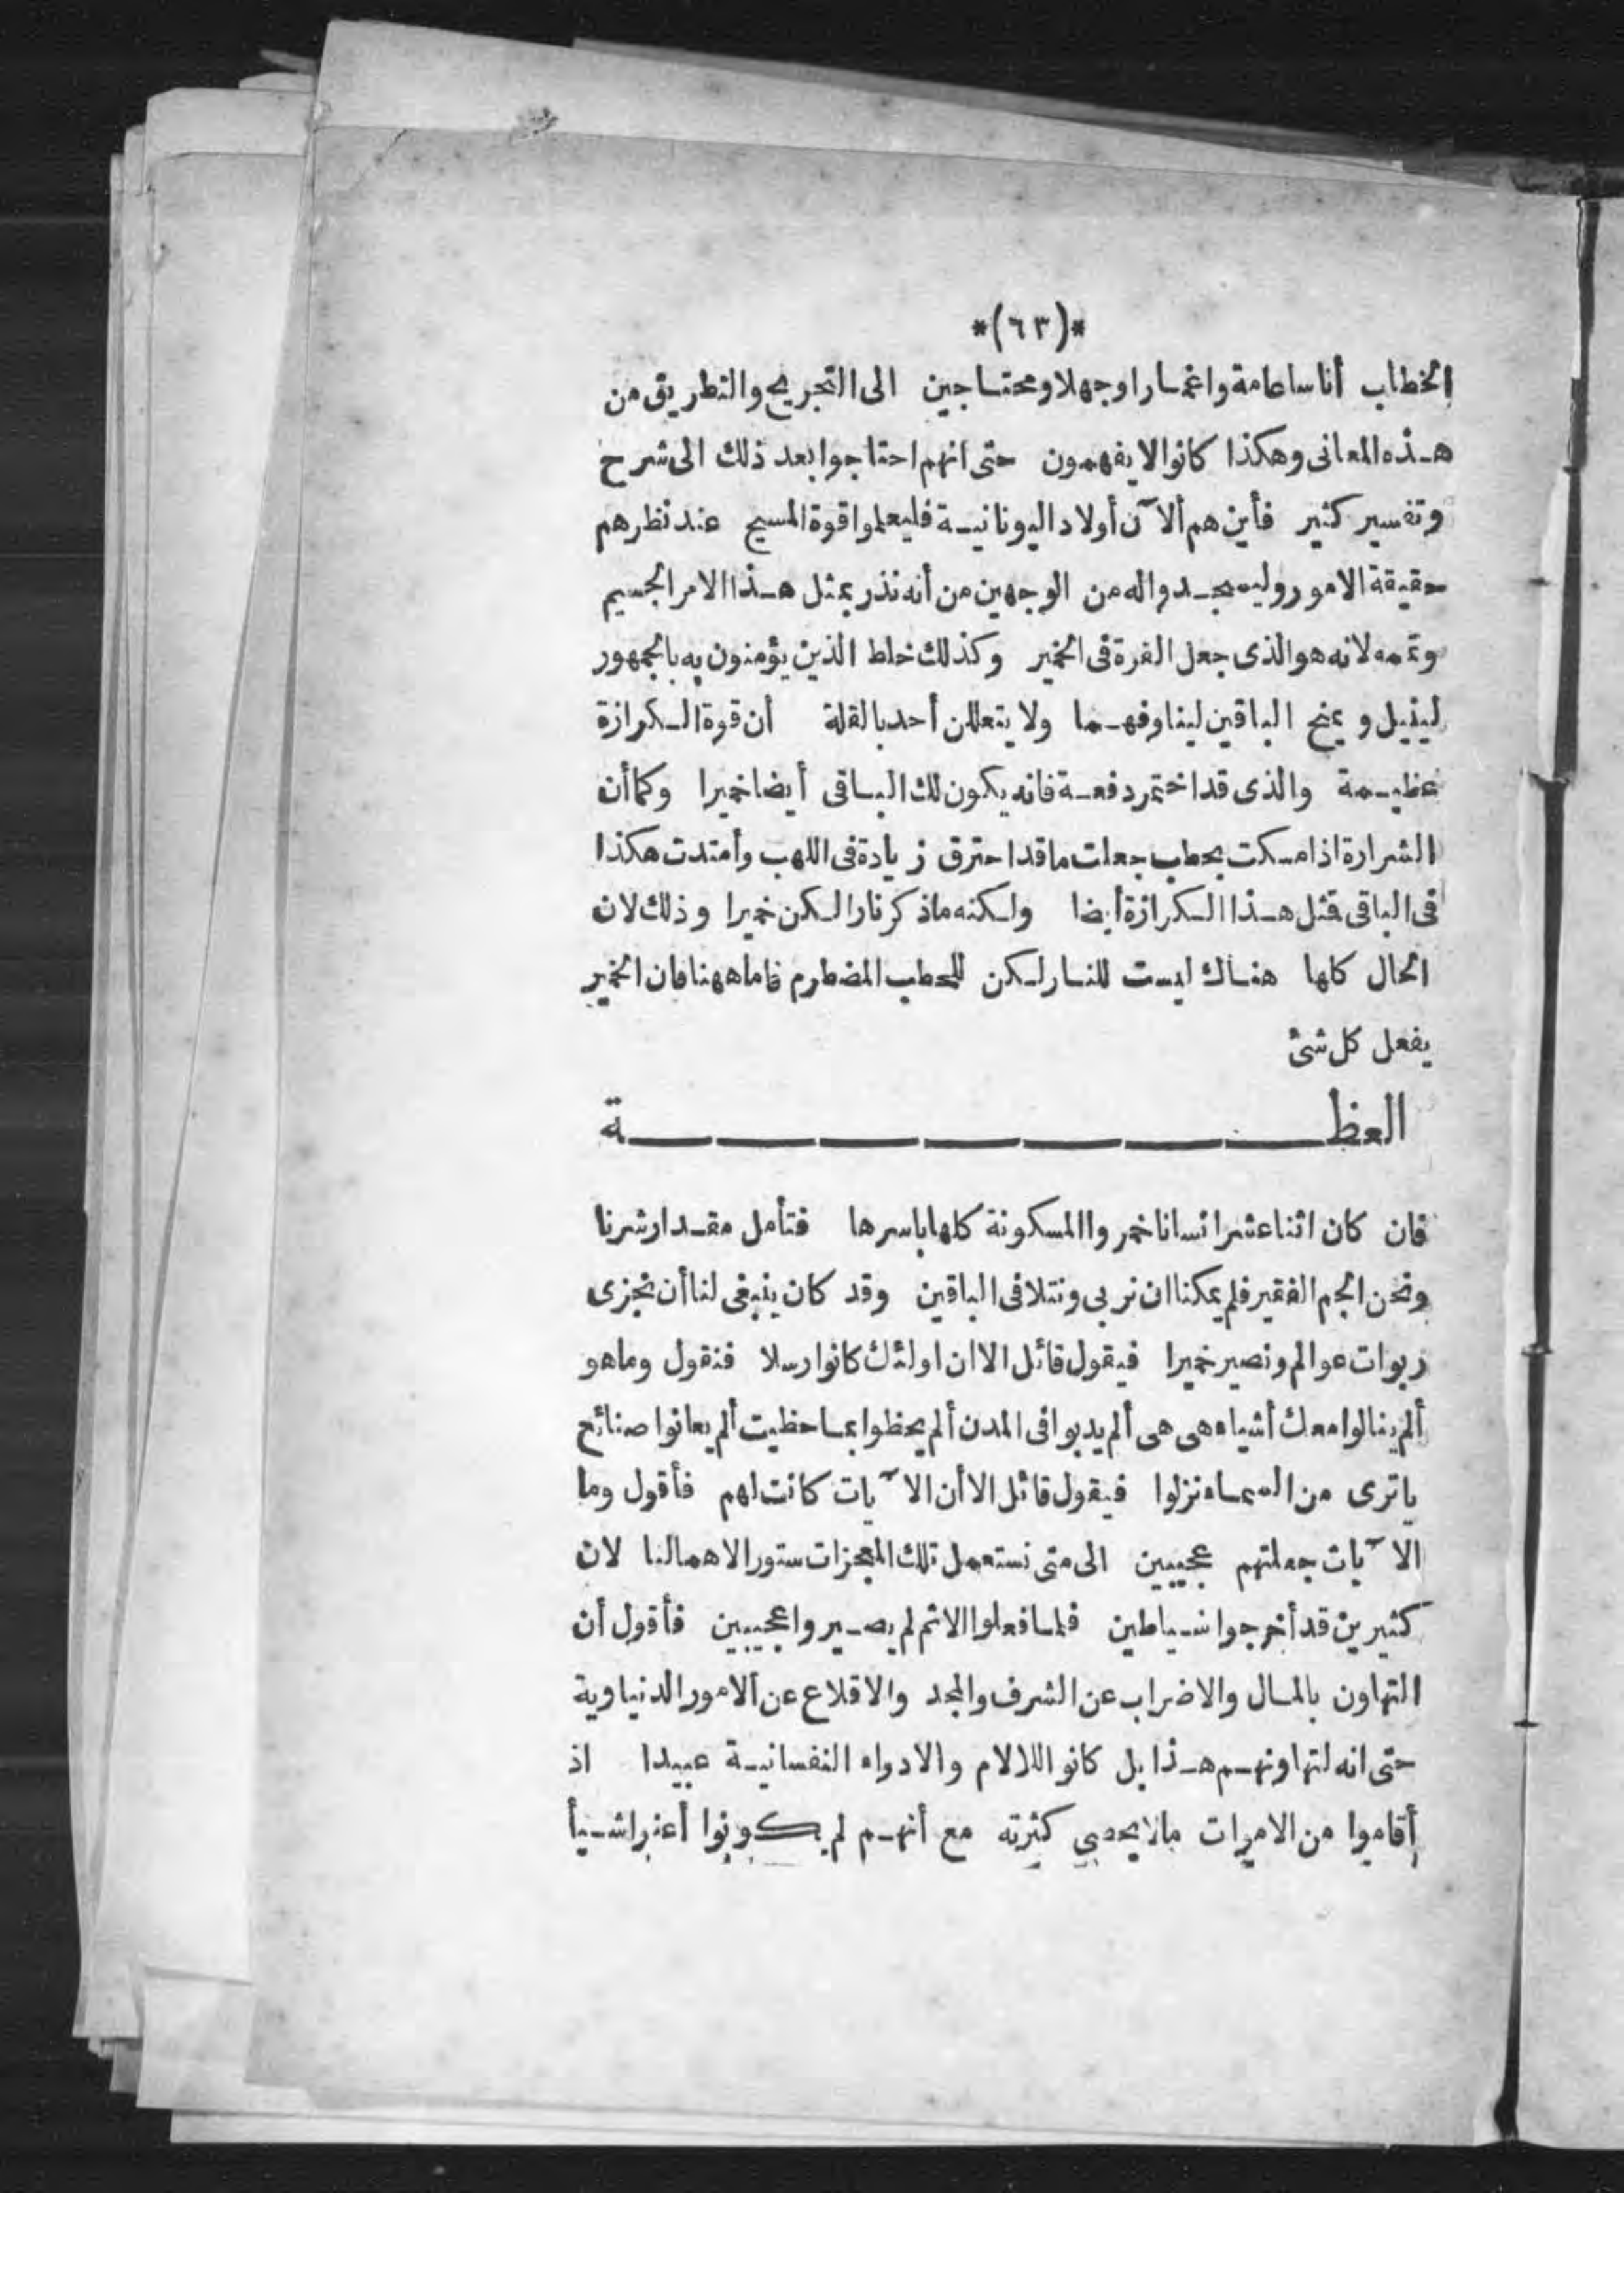 *(٦٣)*
الخطاب أناسا عامة واغمارا وجهلا ومحتاجين الى التجريح والتطريق من
هذه المعانى وهكذا كانوا لا يفهمون حتى انهم احتاجوا بعد ذلك الى شرح
وتفسير كثير فأين هم ألآن أولاد اليونانية فليعلموا قوة المسيح عند نظرهم
حقيقة الامور وليسجدوا له من الوجهين من أنه نذر بمثل هذا الامر الجسيم
وتمه لانه هو الذى جعل القرة فى الخمير وكذلك خلط الذين يؤمنون به بالجمهور
لينيل ويمنح الباقين لينا وفهما ولا يتعللن أحد بالقلة أن قوة الكرازة
عظيمة والذى قد اختمر دفعة فانه يكون لك الباقى أيضا خميرا وكما أن
الشرارة اذا مسكت بحطب جعلت ما قد احترق زيادة فى اللهب وأمتدت هكذا
فى الباقى فمثل هذا الكرازة أيضا ولكنه ماذكر نارا لكن خميرا وذلك لان
الحال كلها هناك ليست للنار لكن للحطب المضطرم فاما ههنا فان الخمير
يفعل كل شئ
العظة
فان كان اثنا عشر انسانا خمروا المسكونة كلها باسرها فتأمل مقدار شرنا
ونحن الجم الفقير فلم يمكنا ان نربى ونتلافى الباقين وقد كان ينبغى لنا أن نجزى
ربوات عوالم ونصير خميرا فيقول قائل الا ان اولئك كانوا رسلا فنقول وما هو
ألم ينالوا معك أشياء هى هى ألم يدبوا فى المدن ألم يحظوا بما حظيت ألم يعانوا صنائع
ياترى من السماء نزلوا فيقول قائل الا أن الآيات كانت لهم فأقول وما
الآيات جعلتهم عجيبين الى متى نستعمل تلك المعجزات ستور الاهمالنا لان
كثيرين قد أخرجوا شياطين فلما فعلوا الاثم لم يصيروا عجيبين فأقول أن
التهاون بالمال والاضراب عن الشرف والمجد والاقلاع عن الامور الدنياوية
حتى انه لتهاونهم هذا بل كانوا اللالام والادواء النفسانية عبيدا اذ
أقاموا من الاموات مالا يحصى كثرته مع أنهم لم يكونوا أعنبرا شيأ